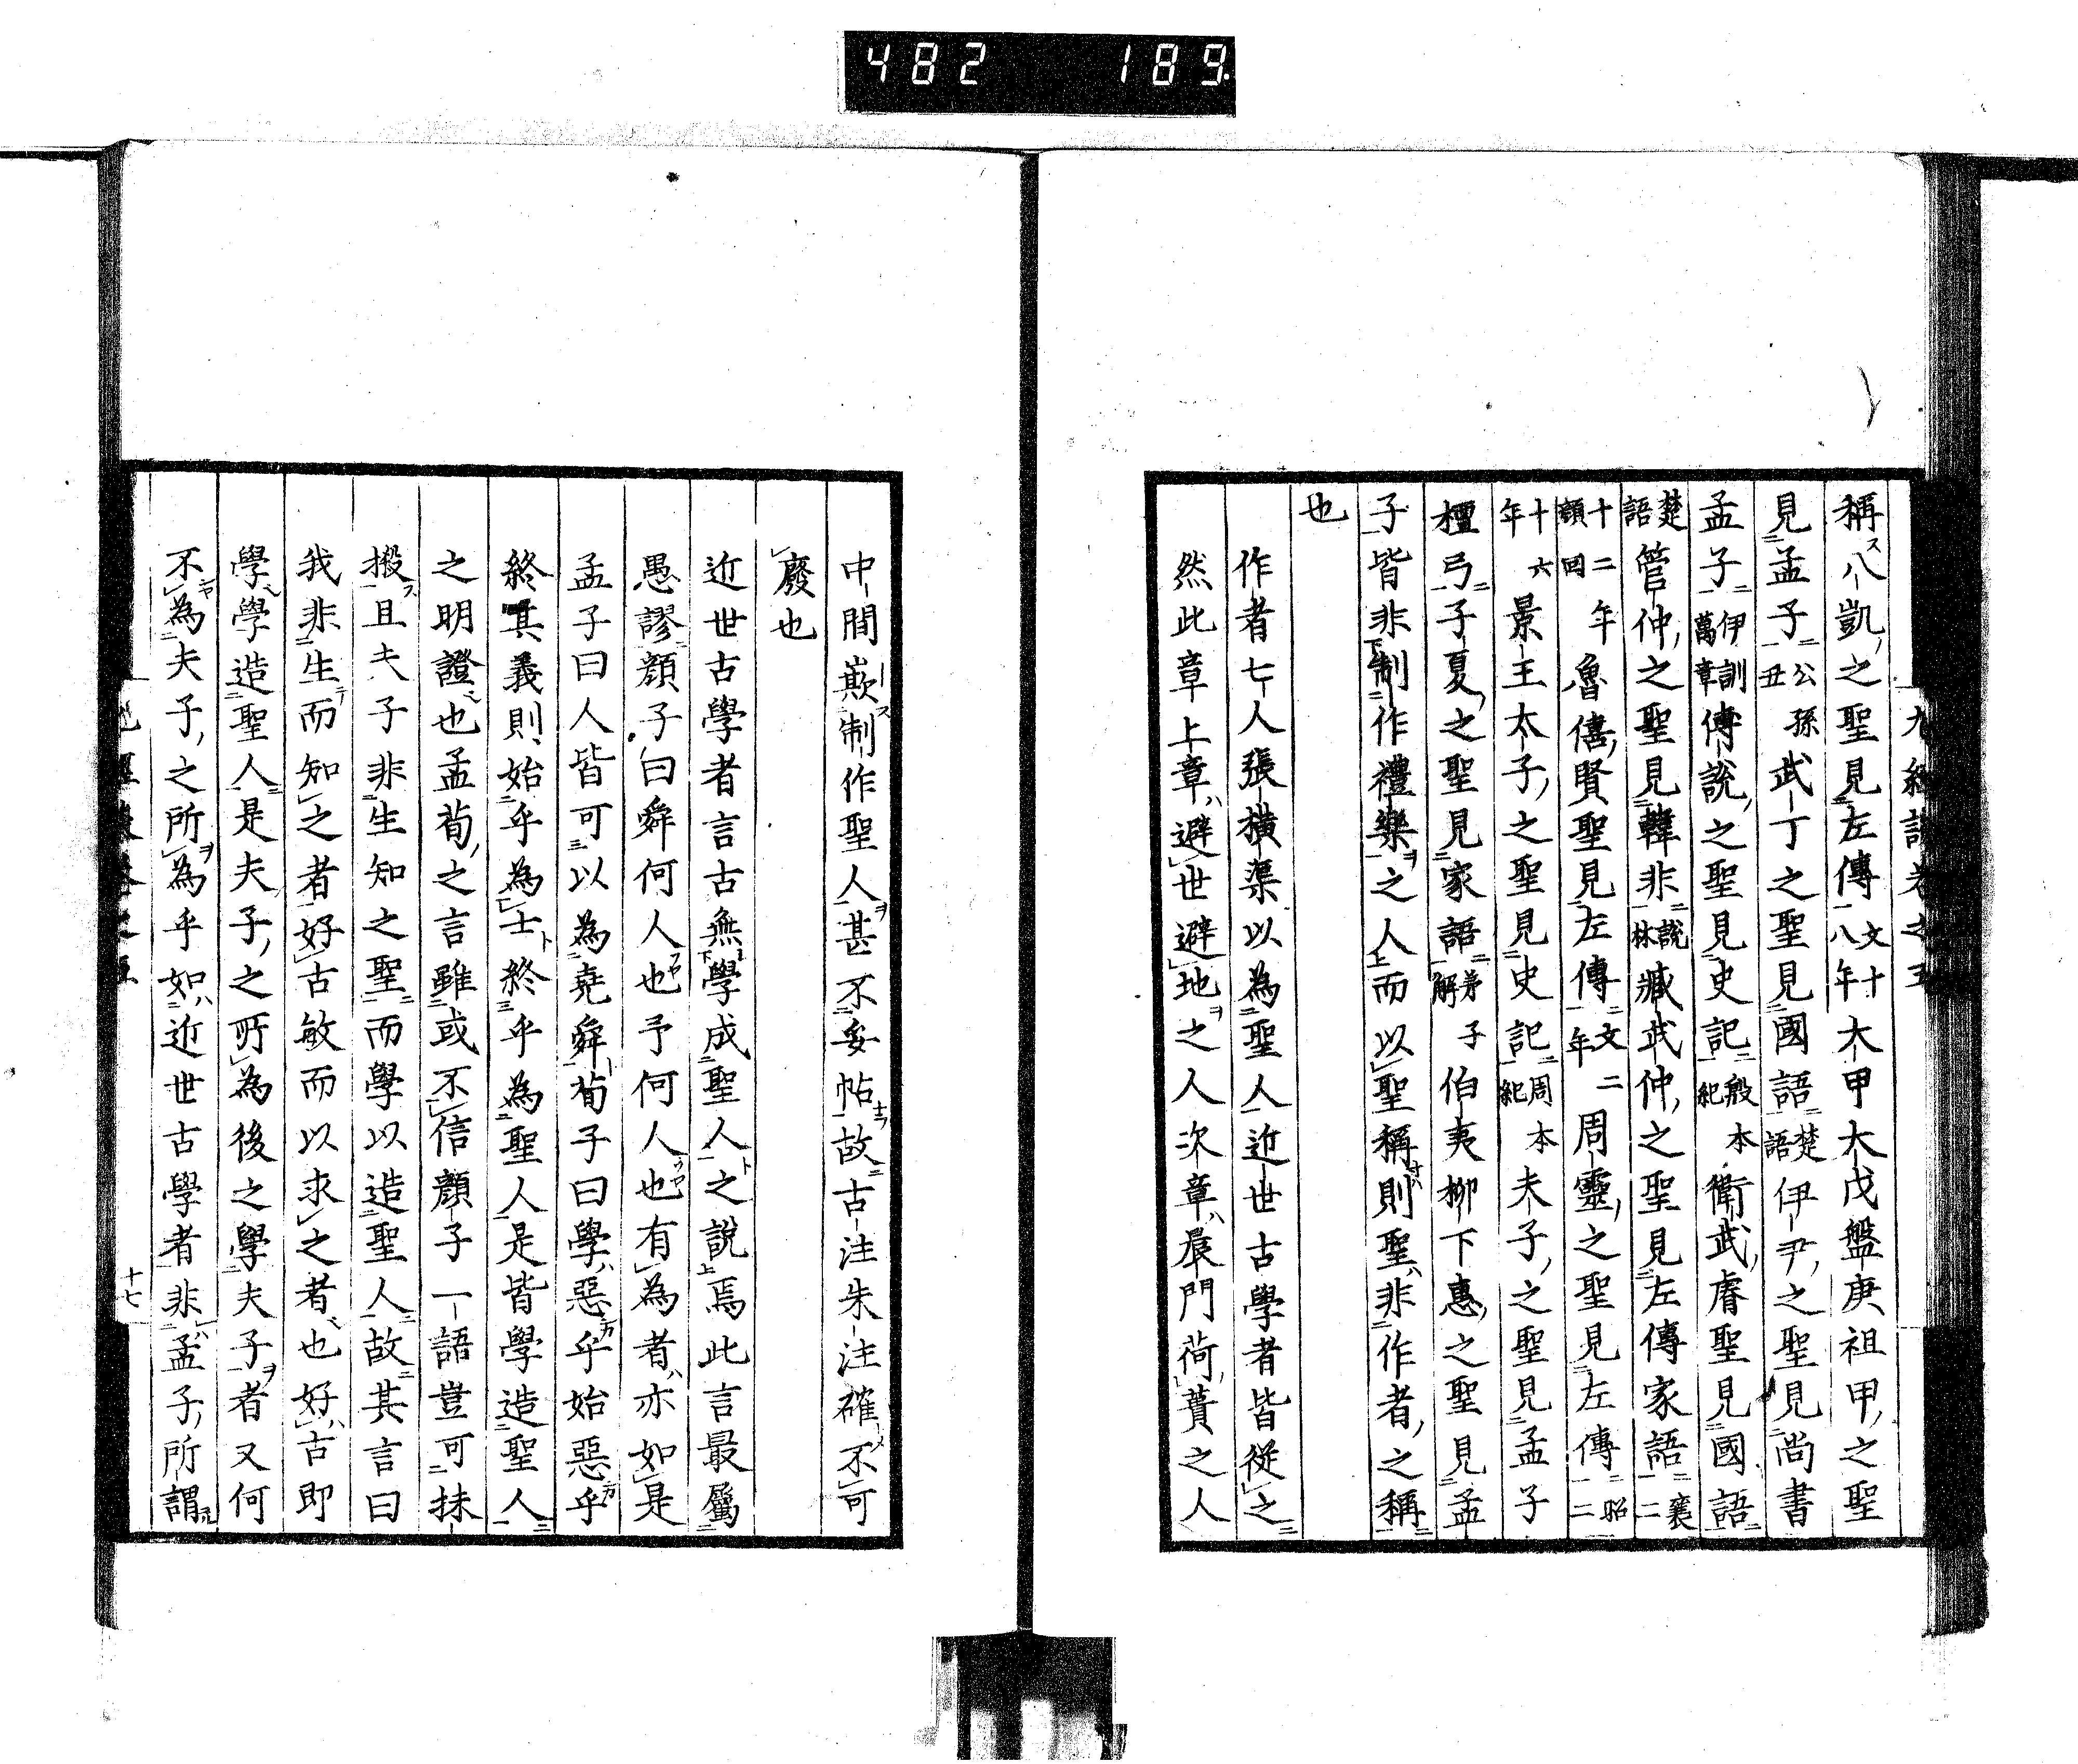 482 189
九經談卷之五
稱八凱之聖見左傳文十八年大甲大戊盤庚祖甲之聖
見孟子公孫丑武丁之聖見國語楚語伊尹之聖見尚書
孟子伊訓萬章傅說之聖見史記殷本紀衛武睿聖見國語
楚語管仲之聖見韓非說林臧武仲之聖見左傳家語襄二
十二年顏回魯僖賢聖見左傳文二年周靈之聖見左傳昭二
十六年景王太子之聖見史記周本紀夫子之聖見孟子
檀弓子夏之聖見家語弟子解伯夷柳下惠之聖見孟
子皆非制作禮樂之人而以聖稱則聖非作者之稱
也
作者七人張橫渠以為聖人近世古學者皆從之
然此章上章避世避地之人次章晨門荷蕢之人
中間嵌制作聖人甚不妥帖故古注朱注確不可
廢也
近世古學者言古無學成聖人之說焉此言最屬
愚謬顏子曰舜何人也予何人也有為者亦如是
孟子曰人皆可以為堯舜荀子曰學惡乎始惡乎
終其義則始乎為士終乎為聖人是皆學造聖人
之明證也孟荀之言雖或不信顏子一語豈可抹
搬且夫子非生知之聖而學以造聖人故其言曰
我非生而知之者好古敏而以求之者也好古即
學學造聖人是夫子之所為後之學夫子者又何
不為夫子之所為乎如近世古學者非孟子所謂
十七